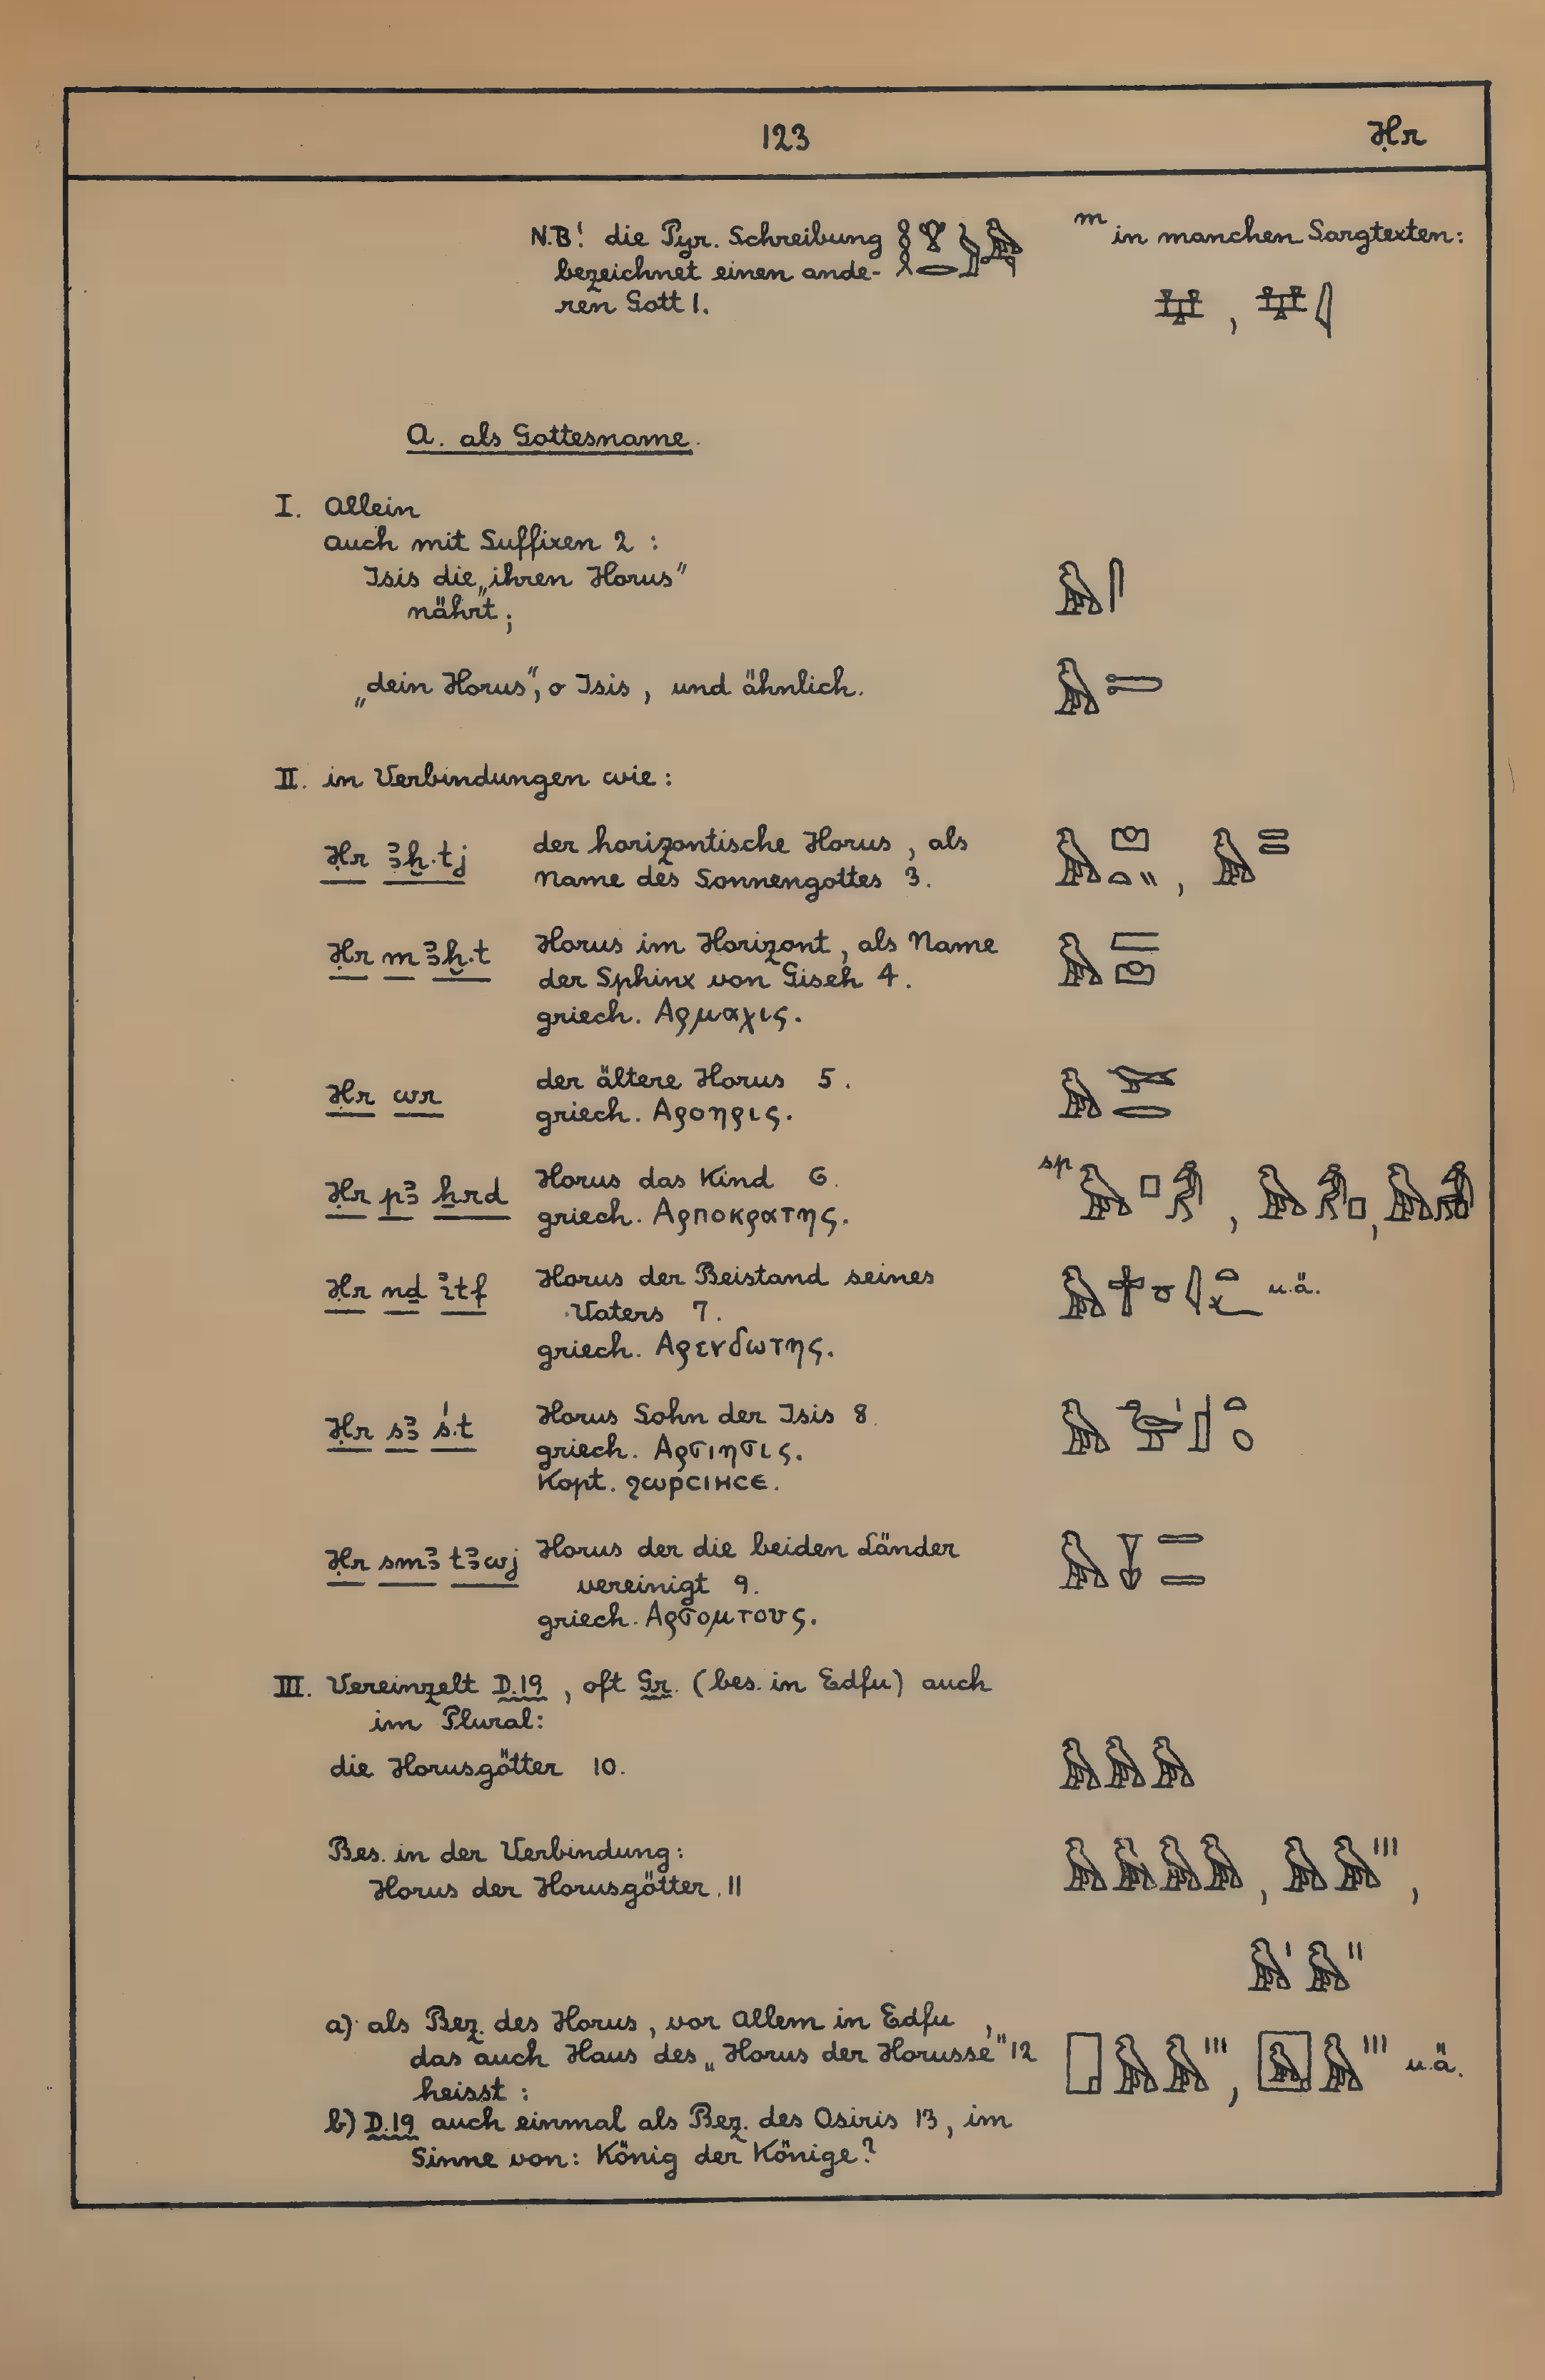 123
Ḥr
N.B! die Pyr. Schreibung
bezeichnet einen ande-
ren Gott 1.
m in manchen Sargtexten:
A. als Gottesname.
I. Allein
auch mit Suffixen 2 :
Isis die „ihren Horus“
nährt;
„dein Horus“, o Isis, und ähnlich.
II. in Verbindungen wie:
Ḥr ꜣḫ.tj der horizontische Horus, als
Name des Sonnengottes 3.
Ḥr m ꜣḫ.t Horus im Horizont, als Name
der Sphinx von Giseh 4.
griech. Αρμαχις.
Ḥr wr der ältere Horus 5.
griech. Αροηρις.
sp
Ḥr pꜣ ẖrd Horus das Kind 6.
griech. Αρποκρατης.
Ḥr nḏ ꞽtf Horus der Beistand seines u.ä.
Vaters 7.
griech. Αρενδωτης.
Ḥr sꜣ ꜣś.t Horus Sohn der Isis 8.
griech. Αρσιησις.
Kopt. ϩωρⲥⲓⲏⲥⲉ.
Ḥr smꜣ tꜣwj Horus der die beiden Länder
vereinigt 9.
griech. Αρσομτους.
III. Vereinzelt D.19, oft Gr. (bes. in Edfu) auch
im Plural:
die Horusgötter 10.
Bes. in der Verbindung:
Horus der Horusgötter. 11
a) als Bez. des Horus, vor Allem in Edfu,
das auch Haus des „Horus der Horusse“ 12 u.ä.
heisst :
b) D.19 auch einmal als Bez. des Osiris 13, im
Sinne von: König der Könige?